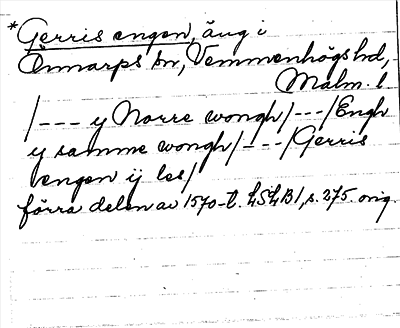 *Gerris engen, äng i
Önnarps sn, Vemmenhögs hd,
Malm. l
/--- y Norre wongh/---/Engh
y samme wongh/---/Gerris
engen ij les/
förra delen av 1570-t. LSLB1, s. 275. orig.